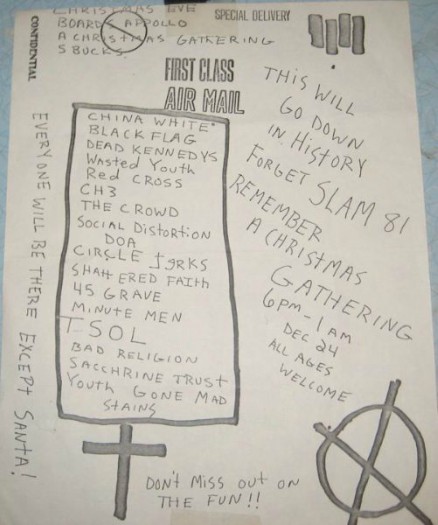 CHRISTMAS EVE
BOARDS APPOLLO
A CHRISTMAS GATHERING
5 BUCKS
SPECIAL DELIVERY
CONFIDENTIAL
FIRST CLASS
AIR MAIL
CHINA WHITE
BLACK FLAG
DEAD KENNEDYS
Wasted Youth
Red CROSS
CH3
THE CROWD
SOCIAL DISTORTION
DOA
CIRCLE JERKS
SHATTERED FAITH
45 GRAVE
MINUTE MEN
TSOL
BAD RELIGION
SACCHRINE TRUST
Youth GONE MAD
STAINS
THIS WILL
GO DOWN
IN HISTORY
FORGET SLAM 81
REMEMBER
A CHRISTMAS
GATHERING
6PM-1AM
DEC 24
ALL AGES
WELCOME
EVERYONE WILL BE THERE EXCEPT SANTA!
DON'T MISS OUT ON
THE FUN!!